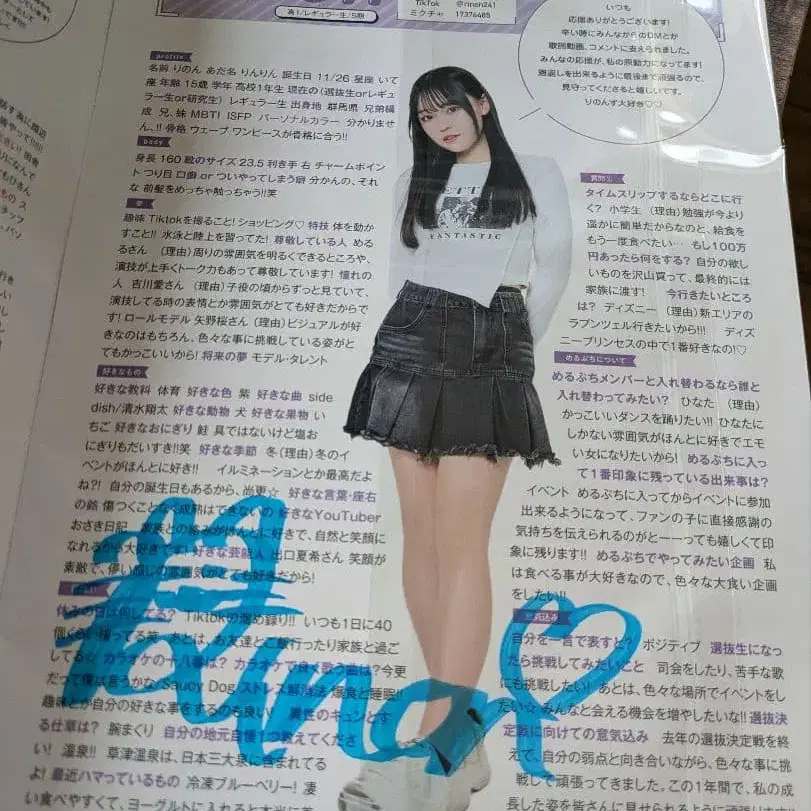 高1/レギュラー生/5期
TikTok @rinon241
ミクチャ 17376485
いつも
応援ありがとうございます!
辛い時にみんなからのDMとか
歌唱動画、コメントに支えられました。
みんなの応援が、私の原動力になってます!
恩返しを出来るように最後まで頑張るので、
見守ってくださると嬉しいです。
りのんず大好き♡♡
profile
名前 りのん あだ名 りんりん 誕生日 11/26 星座 いて
座 年齢 15歳 学年 高校1年生 現在の(選抜生orレギュ
ラー生or研究生) レギュラー生 出身地 群馬県 兄弟構
成 兄、妹 MBTI ISFP パーソナルカラー 分かりませ
ん、!! 骨格 ウェーブ ワンピースが骨格に合う!!
body
身長 160 靴のサイズ 23.5 利き手 右 チャームポイン
ト つり目 口癖 or ついやってしまう癖 分かんの、それ
な 前髪をめっちゃ触っちゃう!!笑
夢
趣味 Tiktokを撮ること! ショッピング♡ 特技 体を動か
すこと!! 水泳と陸上を習ってた! 尊敬している人 める
るさん (理由)周りの雰囲気を明るくできるところや、
演技が上手くトーク力もあって尊敬しています! 憧れの
人 吉川愛さん (理由)子役の頃からずっと見ていて、
演技してる時の表情とか雰囲気がとても好きだからで
す! ロールモデル 矢野桜さん (理由)ビジュアルが好
きなのはもちろん、色々な事に挑戦している姿がと
てもかっこいいから! 将来の夢 モデル・タレント
好きなもの
好きな教科 体育 好きな色 紫 好きな曲 side
dish/清水翔太 好きな動物 犬 好きな果物 い
ちご 好きなおにぎり 鮭 具ではないけど塩お
にぎりもだいすき!!笑 好きな季節 冬(理由)冬のイ
ベントがほんとに好き!! イルミネーションとか最高だよ
ね?! 自分の誕生日もあるから、尚更☆ 好きな言葉・座右
の銘 傷つくことなく成熟はできないの 好きなYouTuber
おさき日記 家族との絡みがほんとに好きで、自然と笑顔に
なれるから大好きです! 好きな芸能人 出口夏希さん 笑顔が
素敵で、儚い感じの雰囲気がとても好きだから!
休みの日は何してる? Tiktokの溜め録り!! いつも1日に40
個くらい撮ってる笑 あとは、お友達とご飯行ったり家族と過ご
してる☆ カラオケの十八番は? カラオケで良く歌う曲は? 今更
だって僕は言うかな/Saucy Dog ストレス解消法 爆食と睡眠!!
趣味とか自分の好きな事をするのも良い! 異性のキュンとす
る仕草は? 腕まくり 自分の地元自慢1つ教えてくださ
い! 温泉!! 草津温泉は、日本三大泉に含まれてる
よ! 最近ハマっているもの 冷凍ブルーベリー! 凄
い食べやすくて、ヨーグルトに入れると本当に美
FANTASTIC
質問②
タイムスリップするならどこに行
く? 小学生 (理由)勉強が今より
遥かに簡単だからなのと、給食を
もう一度食べたい… もし100万
円あったら何をする? 自分の欲し
いものを沢山買って、最終的には
家族に渡す! 今行きたいところ
は? ディズニー (理由)新エリアの
ラプンツェル行きたいから!!! ディズ
ニープリンセスの中で1番好きなの!♡
めるぷちについて
めるぷちメンバーと入れ替わるなら誰と
入れ替わってみたい? ひなた (理由)
かっこいいダンスを踊りたい!! ひなたに
しかない雰囲気がほんとに好きでエモ
い女になりたいから! めるぷちに入っ
て1番印象に残っている出来事は?
イベント めるぷちに入ってからイベントに参加
出来るようになって、ファンの子に直接感謝の
気持ちを伝えられるのがとーーっても嬉しくて印
象に残ります!! めるぷちでやってみたい企画 私
は食べる事が大好きなので、色々な大食い企画
をしたい!!
意気込み
自分を一言で表すと? ポジティブ 選抜生になっ
たら挑戦してみたいこと 司会をしたり、苦手な歌
にも挑戦したい! あとは、色々な場所でイベントをし
たい☆ みんなと会える機会を増やしたいな!! 選抜決
定戦に向けての意気込み 去年の選抜決定戦を終
えて、自分の弱点と向き合いながら、色々な事に挑
戦して頑張ってきました。この1年間で、私の成
長した姿を皆さんに見せられるように
Rinon♡